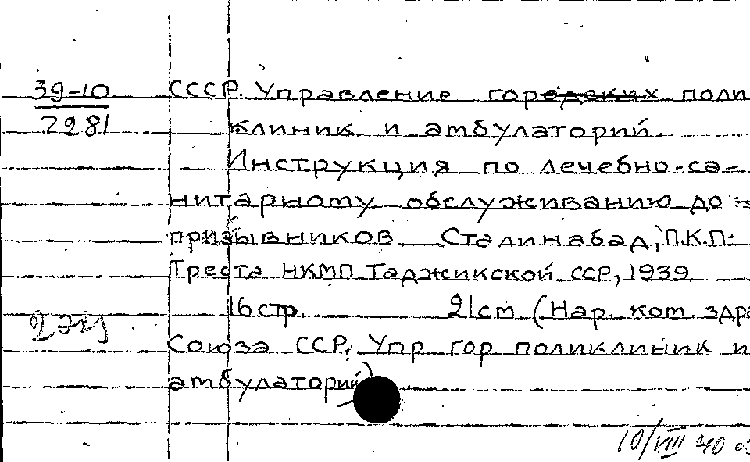 39-10 СССР. Управление городских поли
2281 клиник и амбулаторий.
Инструкция по лечебно-са-
нитарному обслуживанию до-
призывников. Сталинабад, П.К.П.
Треста НКМП Таджикской ССР, 1939
16 стр. 21 см (Нар. ком. здра
Союза ССР, Упр гор поликлиник и
амбулаторий)
10/VIII 40